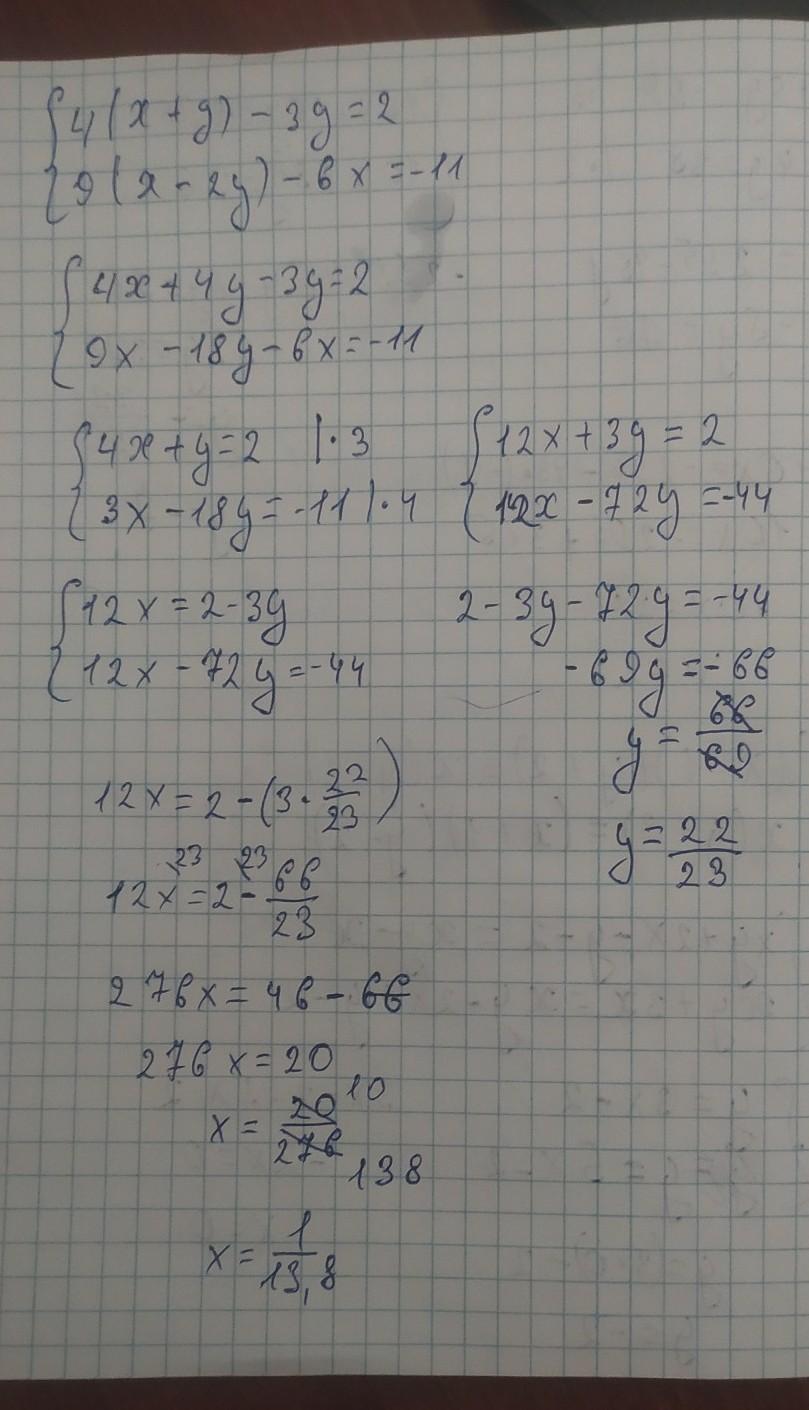 4(x+y)-3y=2
9(x-2y)-6x=-11
4x+4y-3y=2
9x-18y-6x=-11
4x+y=2 |·3
3x-18y=-11 |·4
12x+3y=2
12x-72y=-44
12x=2-3y
12x-72y=-44
2-3y-72y=-44
-69y=-66
y=66/69
y=22/23
12x=2-(3·22/23)
12x^23=2^23-66/23
276x=46-66
276x=20
x=20/276 10 138
x=1/13,8